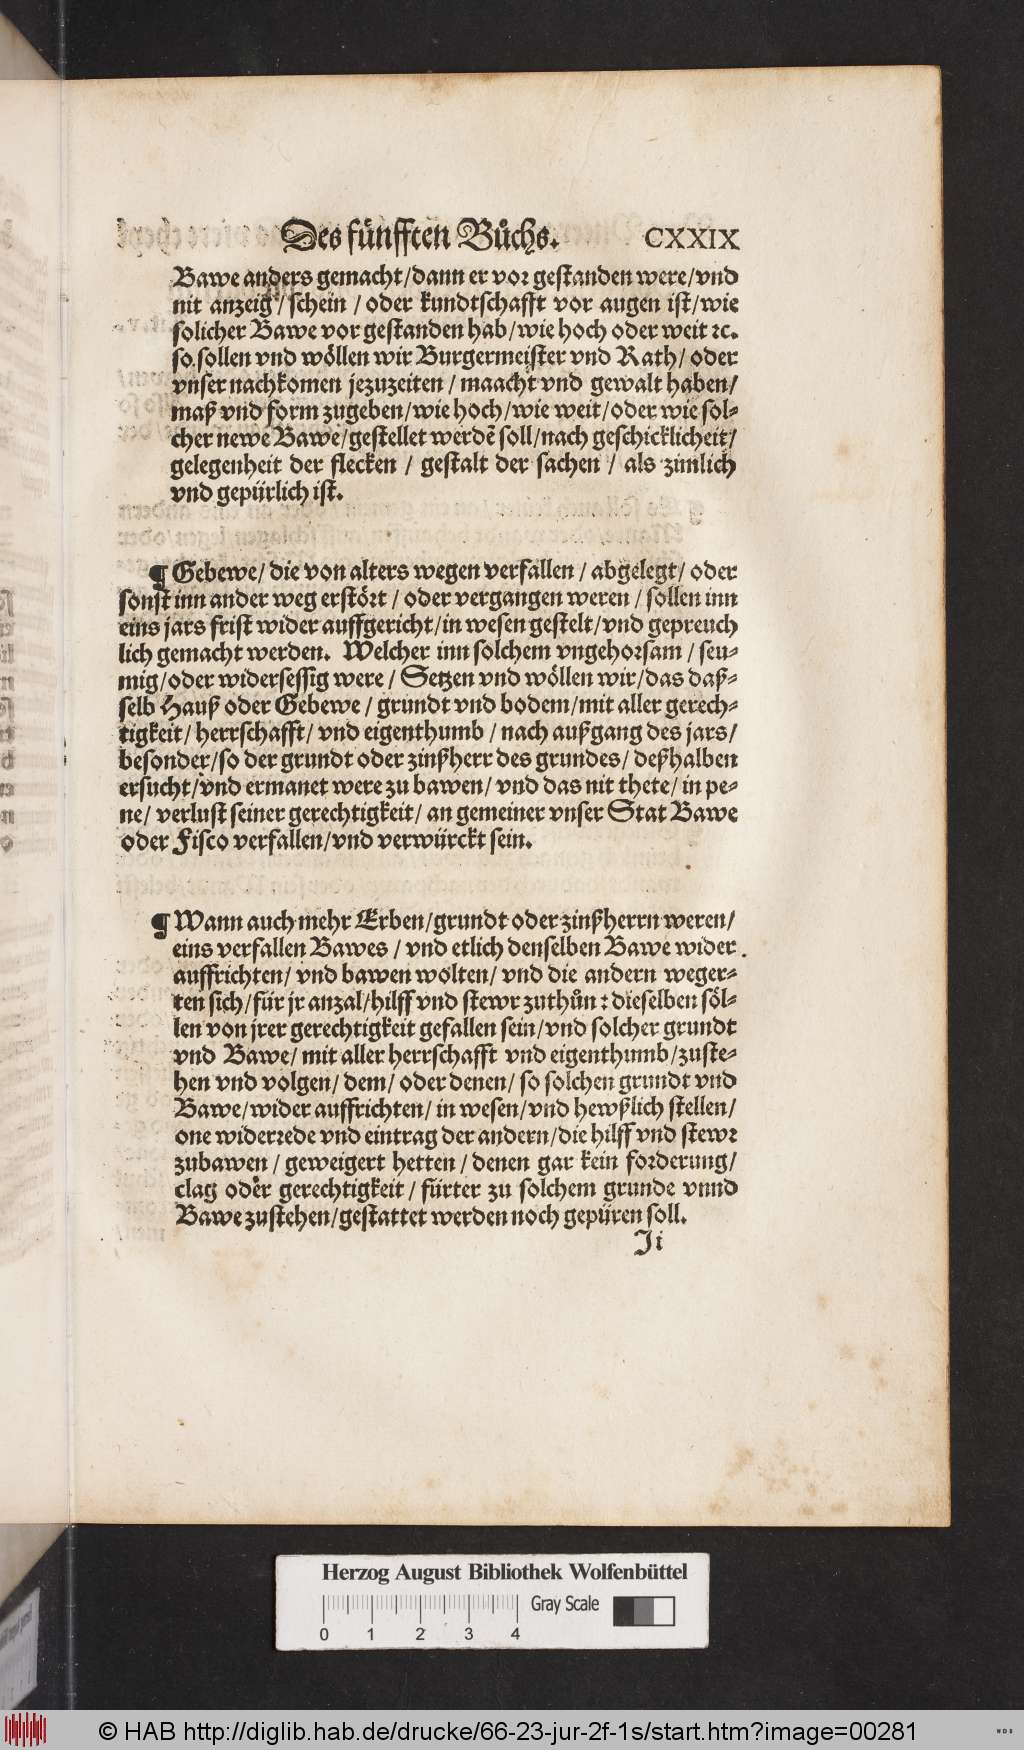 Des fünfften Bůchs. CXXIX
Bawe anders gemacht/dann er vor gestanden were/vnd
nit anzeig/schein/oder kundtschafft vor augen ist/wie
solicher Bawe vor gestanden hab/wie hoch oder weit ꝛc.
so sollen vnd wöllen wir Burgermeister vnd Rath/oder
vnser nachkomen jezuzeiten/maacht vnd gewalt haben/
maß vnd form zugeben/wie hoch/wie weit/oder wie sol⸗
cher newe Bawe/gestellet werdē soll/nach geschicklicheit/
gelegenheit der flecken/gestalt der sachen/als zimlich
vnd gepürlich ist.
¶ Gebewe/die von alters wegen verfallen/abgelegt/oder
sonst inn ander weg erstört/oder vergangen weren/sollen inn
eins jars frist wider auffgericht/in wesen gestelt/vnd gepreuch
lich gemacht werden. Welcher inn solchem vngehorsam/seu⸗
mig/oder widersessig were/Setzen vnd wöllen wir/das daß⸗
selb Hauß oder Gebewe/grundt vnd bodem/mit aller gerech⸗
tigkeit/herrschafft/vnd eigenthumb/nach außgang des jars/
besonder/so der grundt oder zinßherr des grundes/deßhalben
ersucht/vnd ermanet were zu bawen/vnd das nit thete/in pe⸗
ne/verlust seiner gerechtigkeit/an gemeiner vnser Stat Bawe
oder Fisco verfallen/vnd verwürckt sein.
¶ Wann auch mehr Erben/grundt oder zinßherrn weren/
eins verfallen Bawes/vnd etlich denselben Bawe wider
auffrichten/vnd bawen wolten/vnd die andern weger⸗
ten sich/für jr anzal/hilff vnd stewr zuthůn: dieselben söl⸗
len von jrer gerechtigkeit gefallen sein/vnd solcher grundt
vnd Bawe/mit aller herrschafft vnd eigenthumb/zuste⸗
hen vnd volgen/dem/oder denen/so solchen grundt vnd
Bawe/wider auffrichten/in wesen/vnd hewßlich stellen/
one widerrede vnd eintrag der andern/die hilff vnd stewr
zubawen/geweigert hetten/denen gar kein forderung/
clag oder gerechtigkeit/fürter zu solchem grunde vnnd
Bawe zustehen/gestattet werden noch gepüren soll.
Ji
Herzog August Bibliothek Wolfenbüttel
Gray Scale
0 1 2 3 4
© HAB http://diglib.hab.de/drucke/66-23-jur-2f-1s/start.htm?image=00281